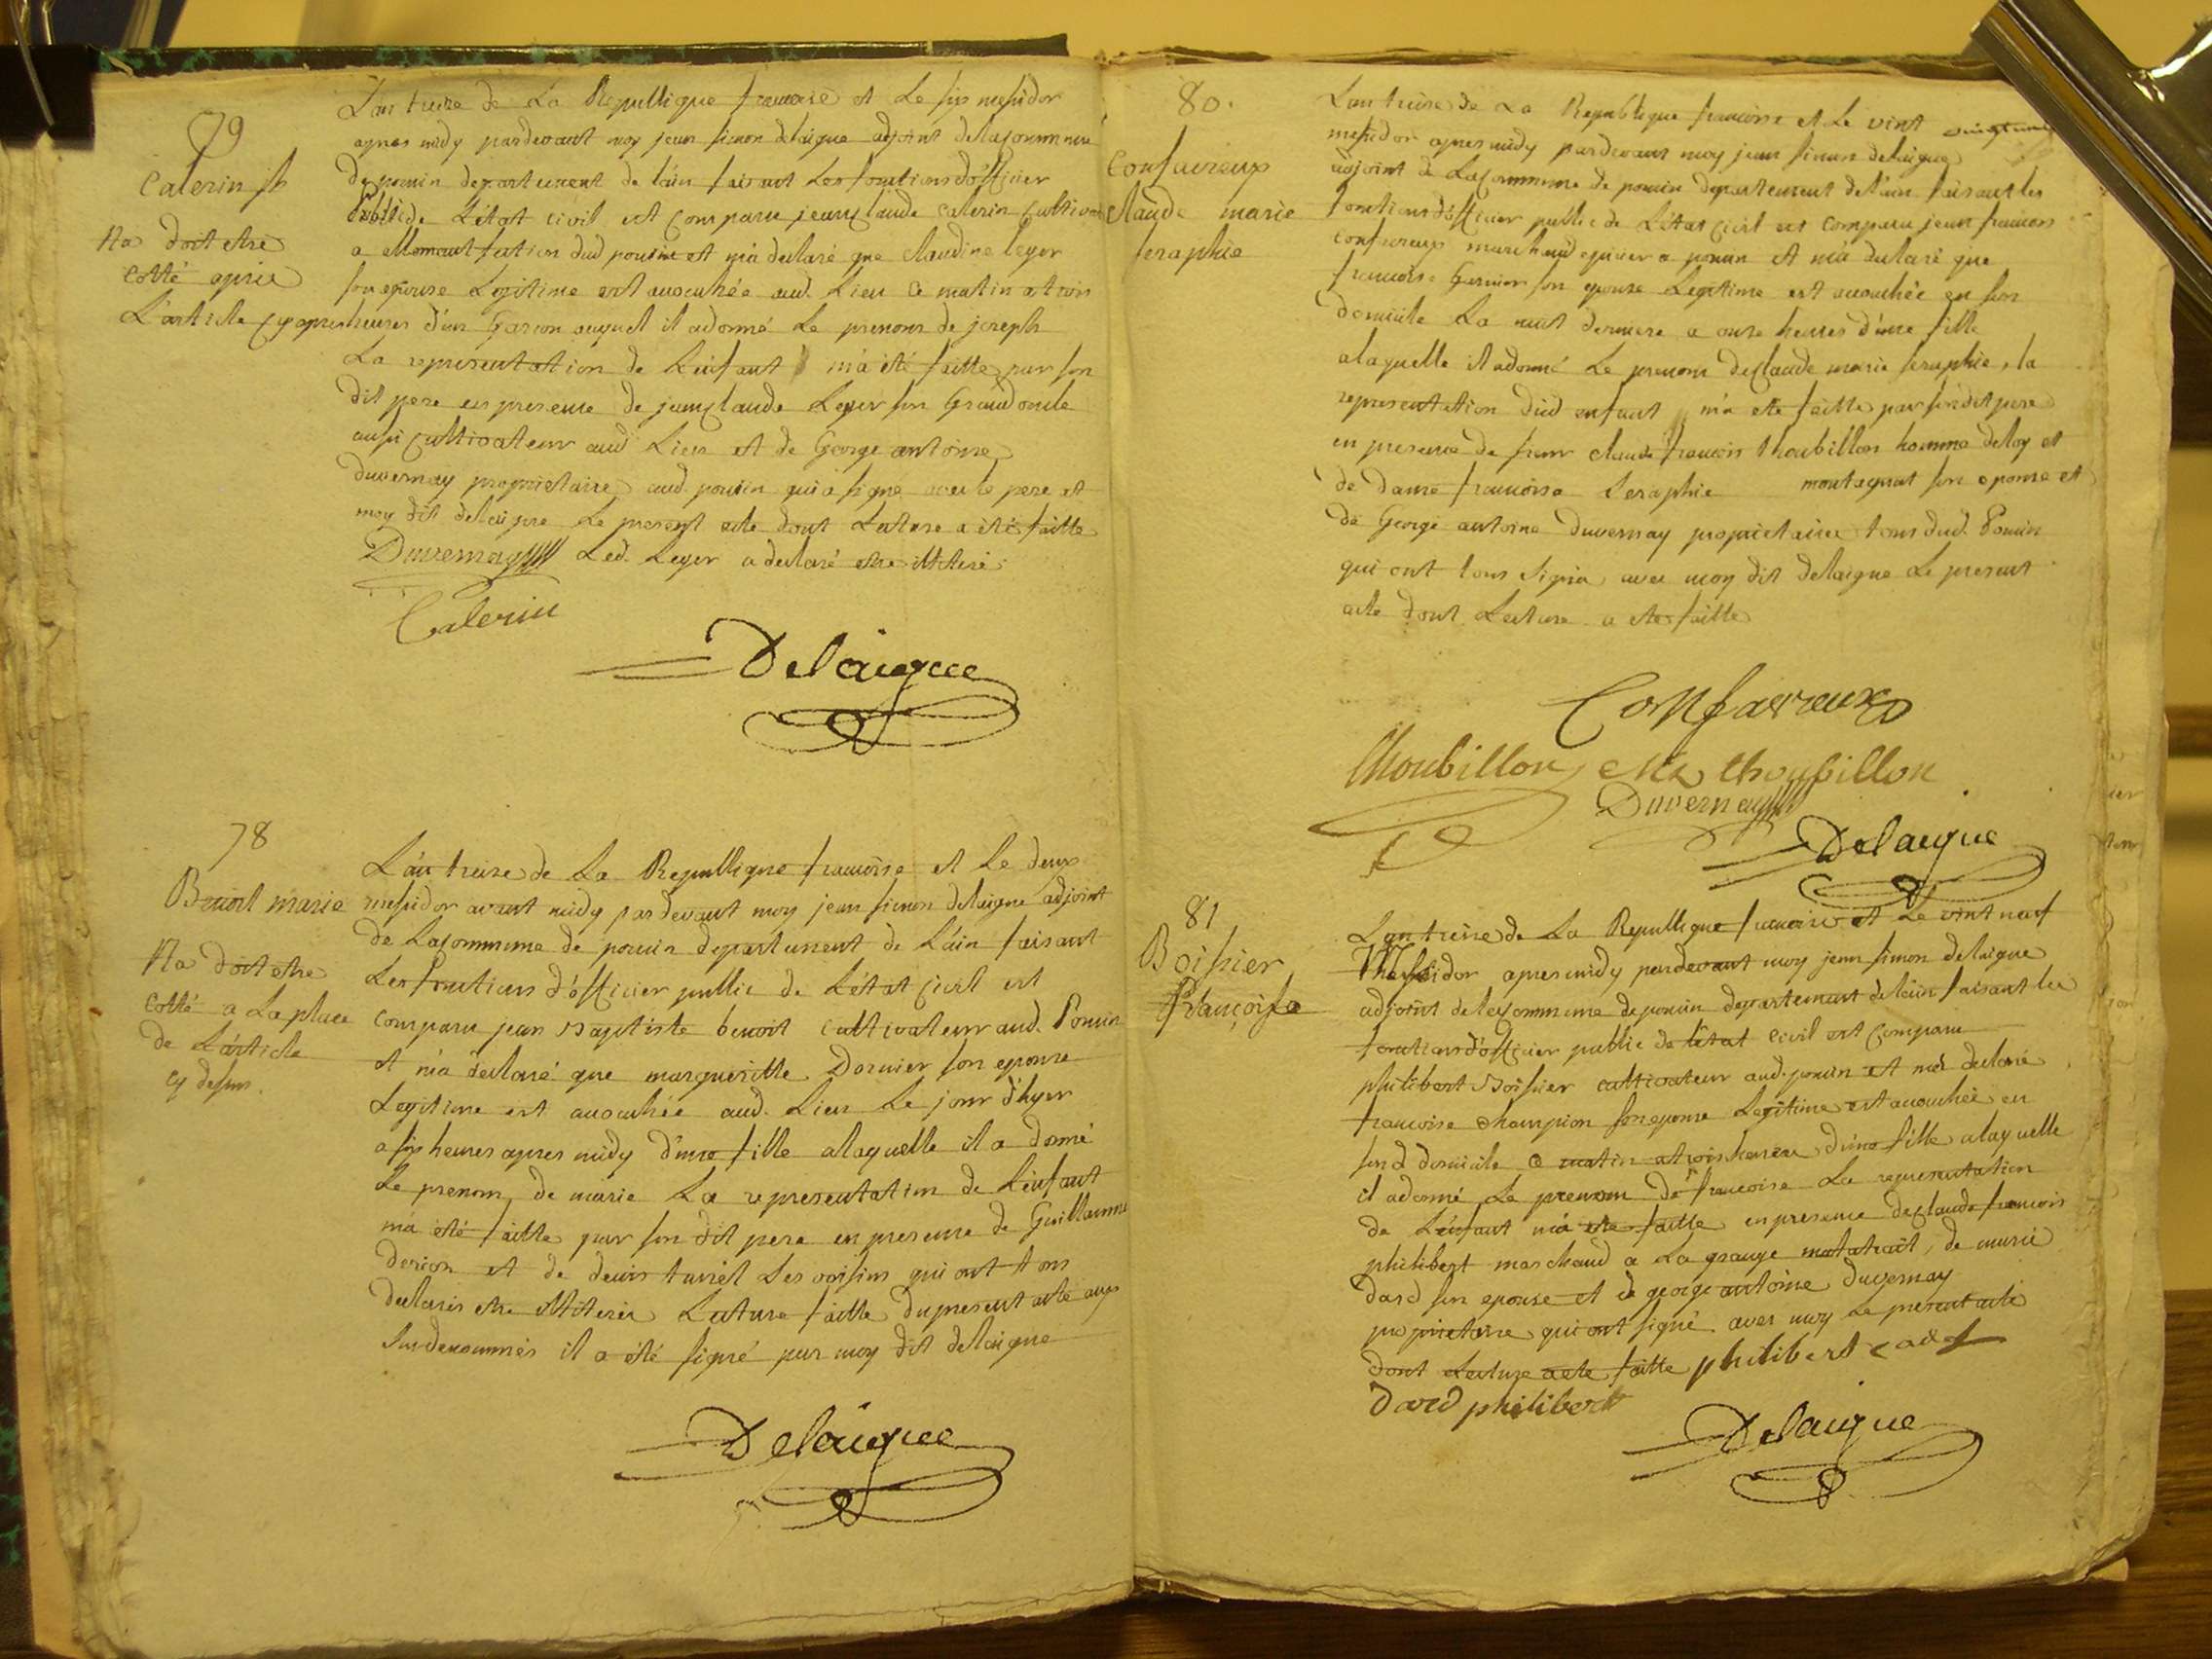 79
Calerin jh
Na doit etre
cotté après
L'article cy apres
L'an treize de La Republique francoise et Le six messidor
apres midy pardevant moy jean simon delaigue adjoint de la commune
de poncin departement de l'ain faisant Les fonctions d'officier
Public de L'état civil est comparu jean claude Calerin cultiva
a dud poncin et m'a declaré que claudine leger
son epouse Legitime est accouchée aud. Lieu ce matin a trois
heures d'un Garçon auquel il a donné Le prenom de joseph
La representation de L'enfant m'a été faitte par son
dit pere en presence de jean claude Leger son Grand oncle
aussi cultivateur aud Lieu et de George antoine
duvernay proprietaire aud. poncin qui a signé avec le pere et
moy dit delaigue Le present acte dont Lecture a été faitte
Duvernay Led. Leger a declaré etre illiteré
Calerin
Delaigue
78
Benoit marie
Na doit etre
cotté a La place
de L'article
cy dessus.
L'an treize de La Republique francoise et Le deux
messidor avant midy pardevant moy jean simon delaigue adjoint
de La commune de poncin departement de L'ain faisant
Les fonctions d'officier public de L'état civil est
comparu jean Baptiste benoit cultivateur aud. Poncin
et m'a declaré que marguerithe Dornier son epouse
Legitime est accouchée aud. Lieu Le jour d'hyer
a six heures apres midy d'une fille a laquelle il a donné
Le prenom de marie La representation de L'enfant
m'a été faitte par son dit pere en presence de Guillaume
derion et de denis turrel Les voisins qui ont tous
declarés etre illiterés Lecture faitte du present acte aux
susdenommés il a été signé par moy dit delaigue
Delaigue
80.
Confavreux
Claude marie
seraphie
L'an treize de La Republique francoise et Le vint
messidor apres midy pardevant moy jean simon delaigue
adjoint de La commune de poncin departement de l'ain faisant les
fonctions d'officier public de L'état civil est comparu jean francois
confavreux marchand epicier a poncin et m'a declaré que
francoise Garnier son epouse Legitime est accouchée en son
domicile La nuit derniere a onze heures d'une fille
a laquelle il a donné Le prenom de claude marie seraphie, la
representation dud enfant m'a ete faitte par son dit pere
en presence de sieur claude francois thoubillon homme de loy et
de dame francoise Seraphie montagnat son epouse et
de George antoine duvernay proprietaire tous dud. Poncin
qui ont tous signé avec moy dit delaigue Le present
acte dont Lecture a ete faitte
Confavreux
thoubillon thoubillon
Duvernay
Delaigue
81
Boissier
Françoise
L'an treize de La Republique francoise et Le vint neuf
Messidor apres midy pardevant moy jean simon delaigue
adjoint de la commune de poncin departement de l'ain faisant les
fonctions d'officier public de l'état civil est comparu
philibert Boissier cultivateur aud. poncin et m'a declaré
francoise champion son epouse Legitime est accouchée en
sond domicile ce matin a trois heures d'une fille a laquelle
il a donné Le prenom de francoise La representation
de L'enfant m'a ete faitte en presence de claude francois
philibert marchand a La grange, de marie
dard son epouse et de george antoine duvernay
proprietaire qui ont signé avec moy Le present acte
dont Lecture a ete faitte philibert cadet
Dard philibert
Delaigue